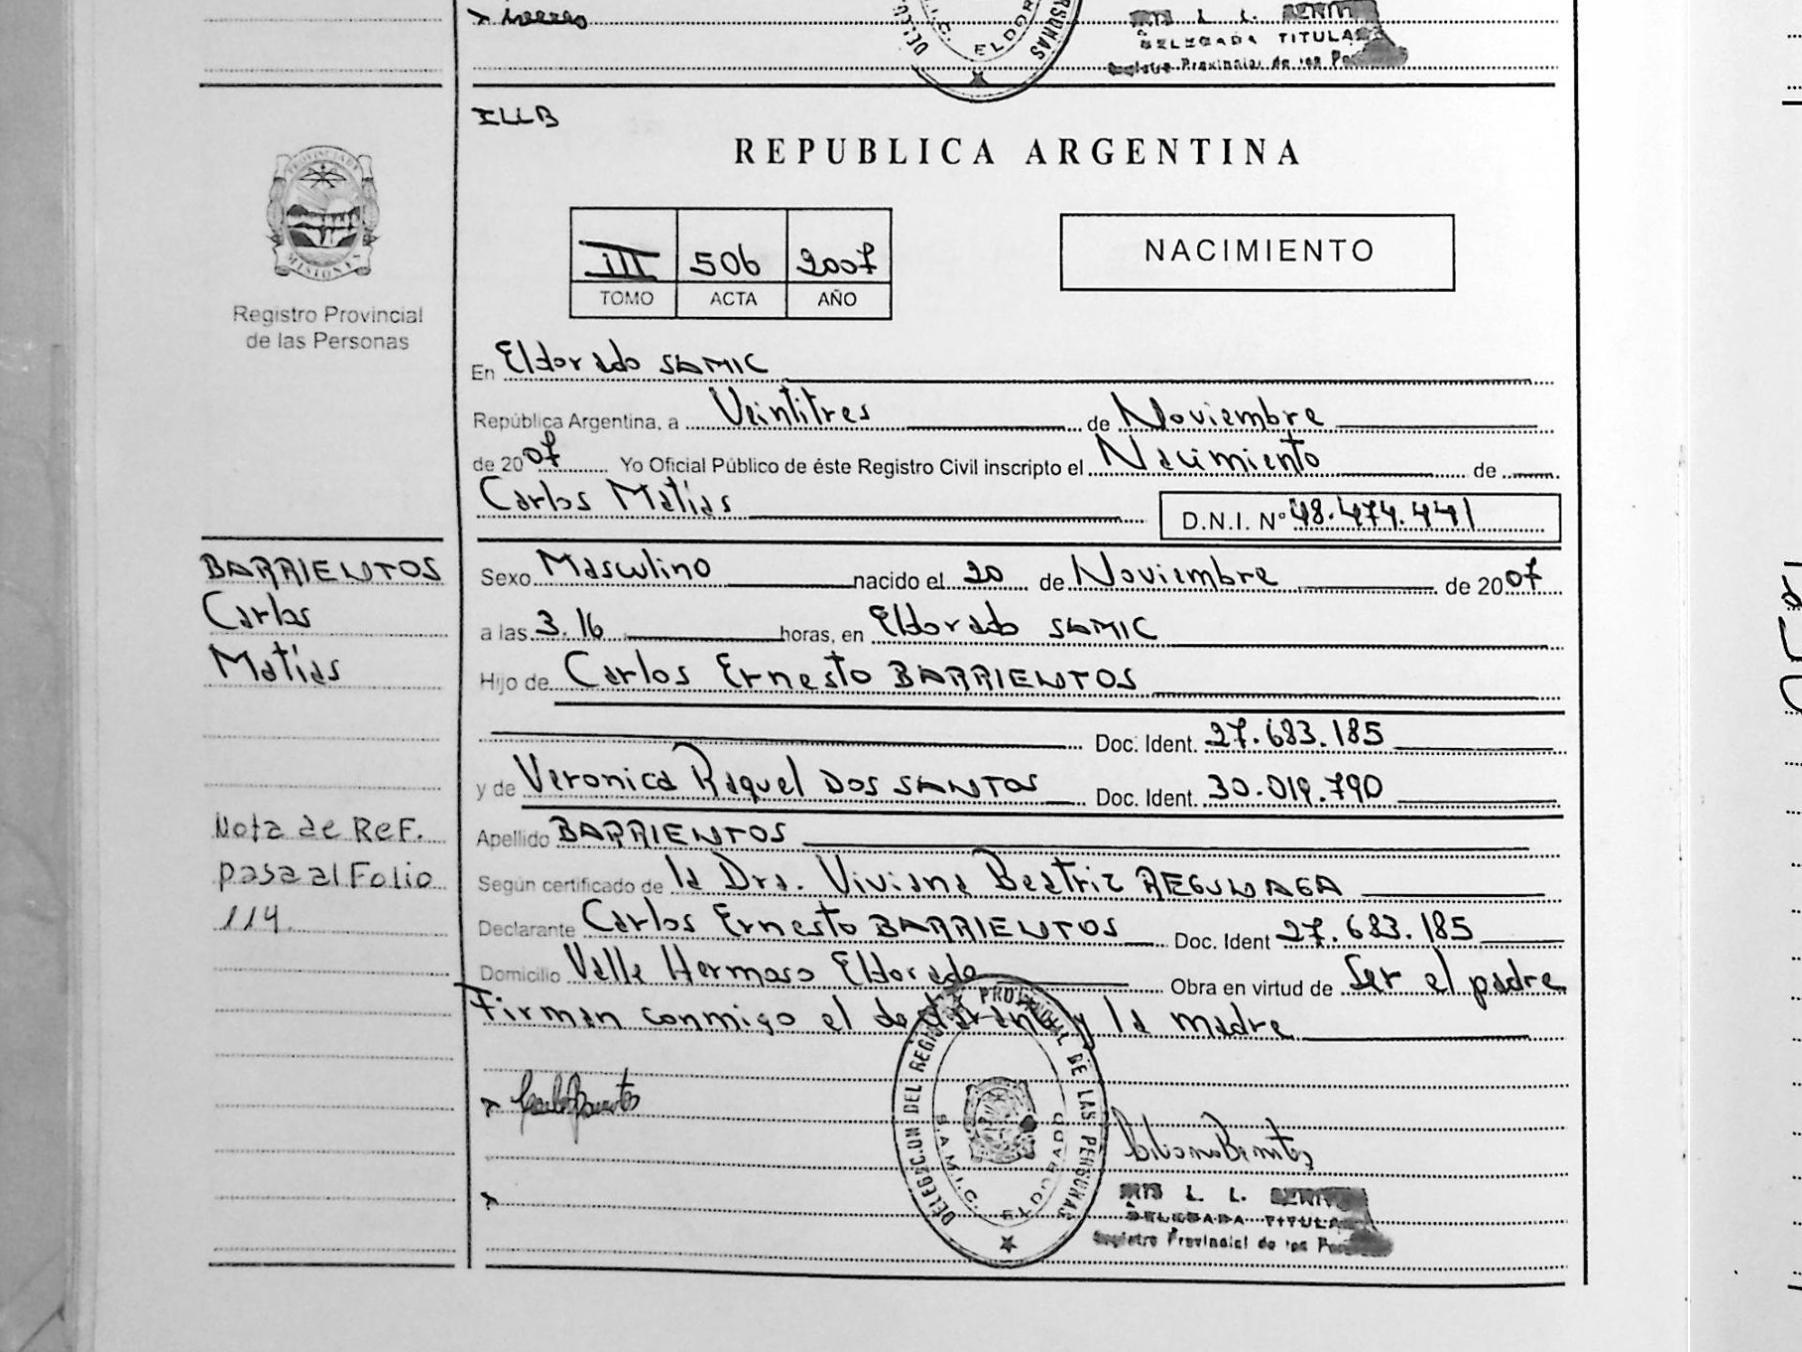 DELEGADA TITULAR
Registro Provincial de las Pe
ELDOR
ILLB
REPUBLICA ARGENTINA
PROVINCIA DE
MISIONES
III 506 2007
TOMO ACTA AÑO
NACIMIENTO
Registro Provincial
de las Personas
En Eldorado SAMIC
República Argentina, a Veintitres de Noviembre
de 2007 Yo Oficial Público de éste Registro Civil inscripto el Nacimiento de
Carlos Matías D.N.I. Nº 48.474.441
BARRIENTOS
Carlos
Matías
Sexo Masculino nacido el 20 de Noviembre de 2007
a las 3.16 horas, en Eldorado SAMIC
Hijo de Carlos Ernesto BARRIENTOS
Doc. Ident. 27.683.185
y de Veronica Raquel DOS SANTOS Doc. Ident. 30.019.790
Nota de ReF.
pasa al Folio
114.
Apellido BARRIENTOS
Según certificado de la Dra. Viviana Beatriz REGUNAGA
Declarante Carlos Ernesto BARRIENTOS Doc. Ident 27.683.185
Domicilio Valle Hermoso Eldorado Obra en virtud de Ser el padre
Firman conmigo el declarante y la madre
DELEGACION DEL REGISTRO PROVINCIAL DE LAS PERSONAS
S.A.M.I.C. ELDORADO
L. L. BENIT
DELEGADA TITULA
Registro Provincial de las Pe